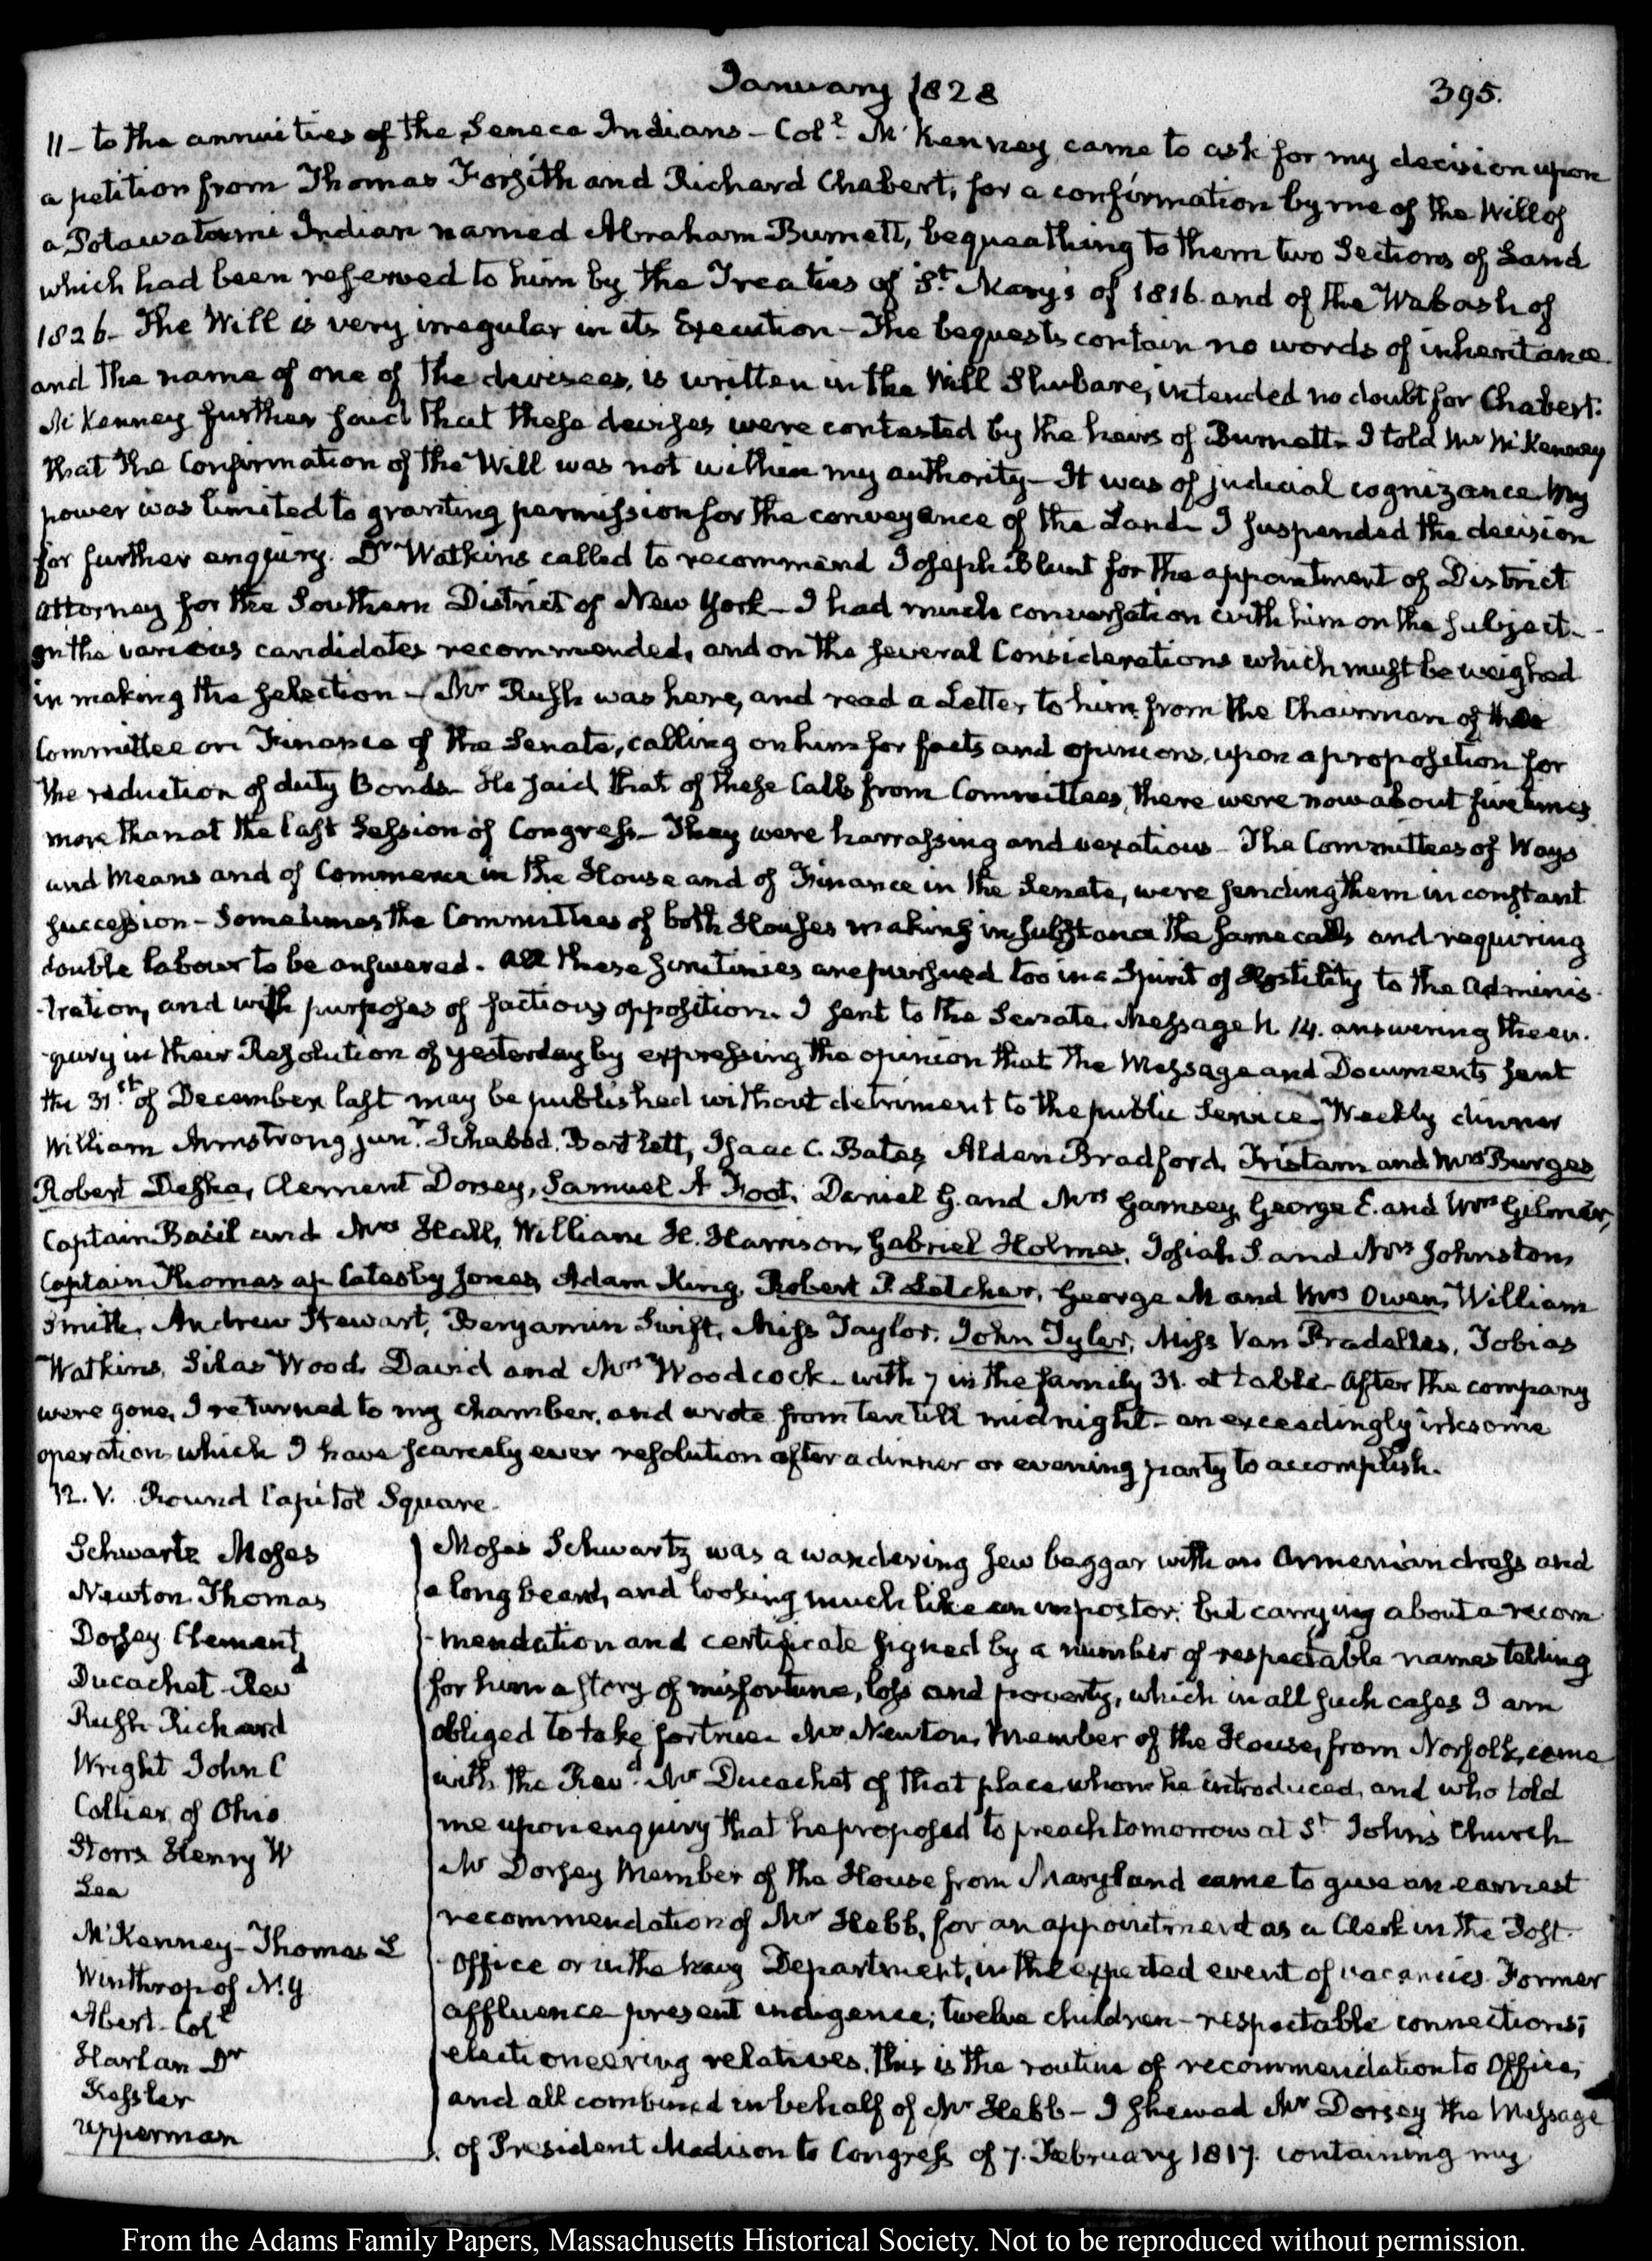 January 1828
395.
11 – to the annuities of the Seneca Indians – Col.l McKenney came to ask for my decision upon
a petition from Thomas Forsith and Richard Chabert, for a confirmation by me of the Will of
a Potawatomi Indian named Abraham Burnett, bequeathing to them two Sections of Land
which had been reserved to him by the Treaties of St. Mary's of 1816 and of the Wabash of
1826 – The Will is very irregular in its Execution – The bequests contain no words of inheritance
and the name of one of the devisees, is written in the Will Shubare, intended no doubt for Chabert.
McKenney further said that these devises were contested by the heirs of Burnett – I told Mr McKenney
that the Confirmation of the Will was not within my authority – It was of judicial cognizance My
power was limited to granting permission for the conveyance of the Land – I suspended the decision
for further enquiry. Dr Watkins called to recommend Joseph Blunt for the appointment of District
Attorney for the Southern District of New York – I had much conversation with him on the subject –
on the various candidates recommended, and on the several Considerations which must be weighed
in making the selection – Mr Rush was here, and read a Letter to him from the Chairman of the
Committee on Finance of the Senate, calling on him for facts and opinions, upon a proposition for
the reduction of duty Bonds – He said that of these Calls from Committees, there were now about five times
more than at the last Session of Congress – They were harrassing and vexatious – The Committees of Ways
and Means and of Commerce in the House and of Finance in the Senate, were sending them in constant
succession – Sometimes the Committees of both Houses making in substance the same calls and requiring
double labour to be answered. All these scrutinies are pursued too in a Spirit of Hostility to the Adminis-
-tration, and with purposes of factious opposition. I sent to the Senate Message N. 14. answering the en-
-quiry in their Resolution of yesterday by expressing the opinion that the Message and Documents sent
the 31.st of December last may be published without detriment to the public Service – Weekly dinner
William Armstrong junr. Ichabod Bartlett, Isaac C. Bates, Alden Bradford, Tristam and Mrs Burges
Robert Desha, Clement Dorsey, Samuel A Foot, Daniel G. and Mrs Garnsey, George E. and Mrs Gilmer,
Captain Basil and Mrs Hall, William H. Harrison, Gabriel Holmes, Josiah S. and Mrs Johnston,
Captain Thomas ap Catesby Jones, Adam King, Robert P. Letcher, George M and Mrs Owen, William
Smith, Andrew Stewart, Benjamin Swift, Miss Taylor, John Tyler, Miss Van Pradelles, Tobias
Watkins, Silas Wood, David and Mrs Woodcock – with 7 in the family 31. at table – After the company
were gone, I returned to my chamber, and wrote from ten till midnight – an exceedingly irksome
operation which I have scarcely ever resolution after a dinner or evening party to accomplish.
12. V. Round Capitol Square –
Schwartz Moses
Newton Thomas
Dorsey Clement
Ducachet Revd
Rush Richard
Wright John C
Collier of Ohio
Storrs Henry W
Lea
McKenney – Thomas L
Winthrop of N.Y
Abert – Coll
Harlan Dr
Kessler
Upperman
Moses Schwartz was a wandering Jew beggar with an Armenian dress and
a long beard, and looking much like an impostor: but carrying about a recom-
-mendation and certificate signed by a number of respectable names telling
for him a story of misfortune, loss and poverty, which in all such cases I am
obliged to take for true – Mr Newton, Member of the House, from Norfolk, came
with the Revd. Mr Ducachet of that place whom he introduced, and who told
me upon enquiry that he proposed to preach tomorrow at St. John's Church
Mr Dorsey Member of the House from Maryland came to give an earnest
recommendation of Mr Hebb, for an appointment as a Clerk in the Post
Office or in the Navy Department, in the expected event of vacancies. Former
affluence present indigence; twelve children – respectable connections;
electioneering relatives, this is the routine of recommendation to Office;
and all combined in behalf of Mr Hebb – I shewed Mr Dorsey the Message
of President Madison to Congress of 7. February 1817. containing my
From the Adams Family Papers, Massachusetts Historical Society. Not to be reproduced without permission.